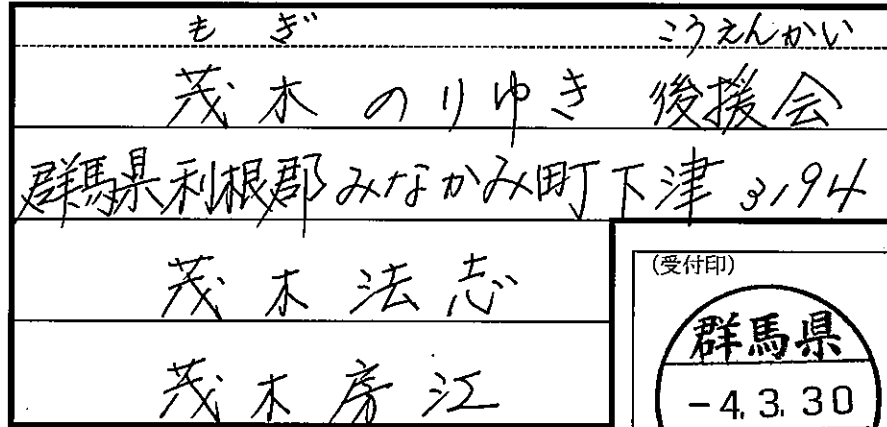 もぎ こうえんかい
茂木 のりゆき 後援会
群馬県利根郡みなかみ町下津 3194
茂木法志
茂木房江
(受付印)
群馬県
-4.3.30